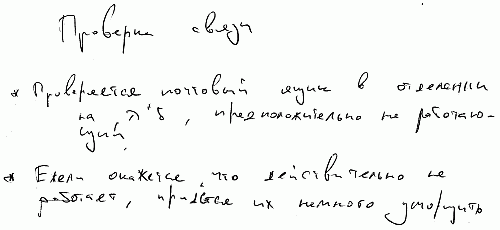 Проверка связи
* Проверяется почтовый ящик в отделении
на, предположительно не работаю-
щий,
* Если окажется, что действительно не
работает, придется их немного уморщить